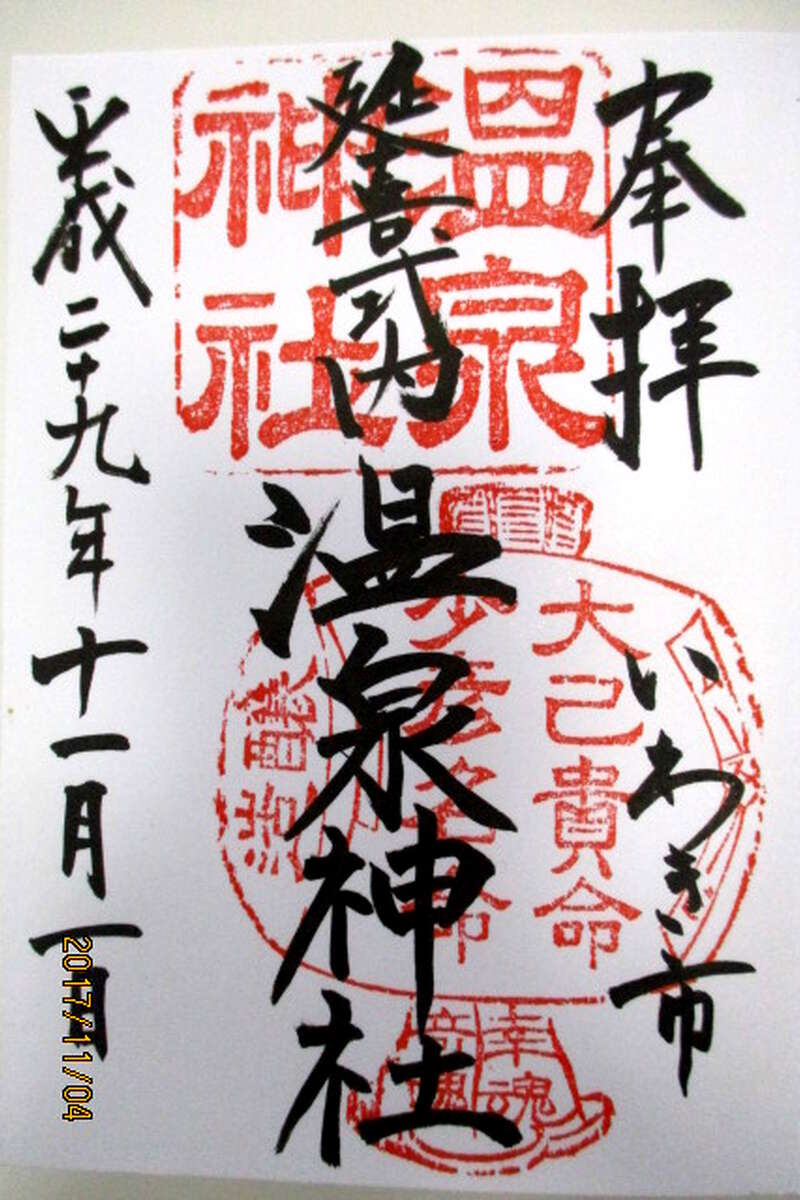 奉拝
いわき市
延喜式内
温泉神社
平成二十九年十一月一日
温泉
神社
大己貴命
少彦名命
幸魂
奇魂
2017/11/04